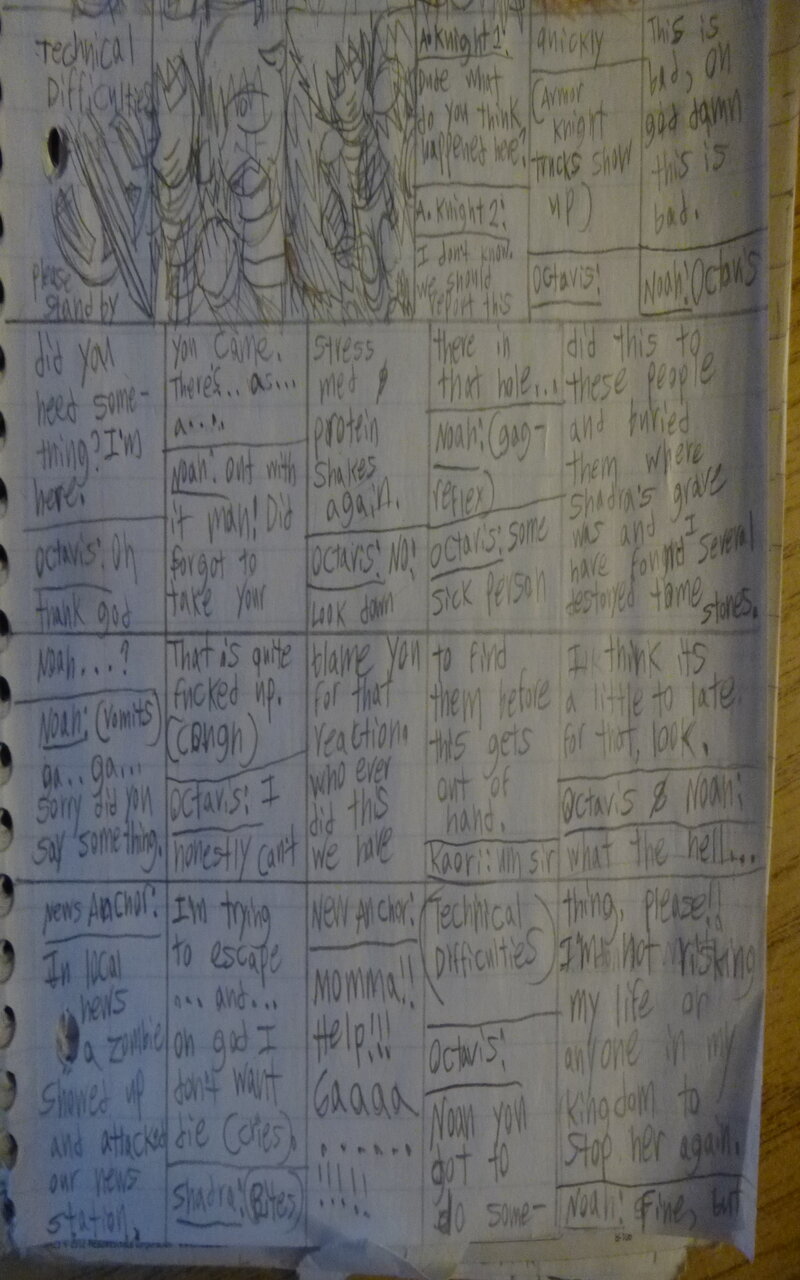 Technical
Difficulties
please
stand by
A. Knight 1:
Dude what
do you think
happened here?
A. Knight 2:
I don't know.
we should
report this
quickly
(Armor
knight
trucks show
up)
Octavis:
This is
bad, oh
god damn
this is
bad.
Noah: Octavis
did you
need some-
thing? I'm
here.
Octavis: Oh
thank god
you came.
There's.. as...
a....
Noah: out with
it man! Did
forgot to
take your
stress
med &
protein
shakes
again.
Octavis: NO!
Look down
there in
that hole...
Noah: (gag-
reflex)
Octavis: some
sick person
did this to
these people
and buried
them where
Shadra's grave
was and I
have found several
destoryed tome
stones.
Noah...?
Noah: (vomits)
ga.. ga...
sorry did you
say something.
That is quite
fucked up.
(cough)
Octavis: I
honestly can't
blame you
for that
reaction.
who ever
did this
we have
to find
them before
this gets
out of
hand.
Kaori: um sir
I think its
a little to late
for that, look.
Octavis & Noah:
what the hell...
News Anchor:
In local
news
a zombie
showed up
and attacked
our news
station.
I'm trying
to escape
... and...
oh god I
don't want
die (cries).
Shadra: (Bites)
New Anchor:
Momma!!
Help!!!
Gaaaa
......
!!!!!
(Technical
Difficulties)
Octavis:
Noah you
got to
do some-
thing, please!!
I'm not risking
my life or
anyone in my
kingdom to
stop her again.
Noah: Fine, but